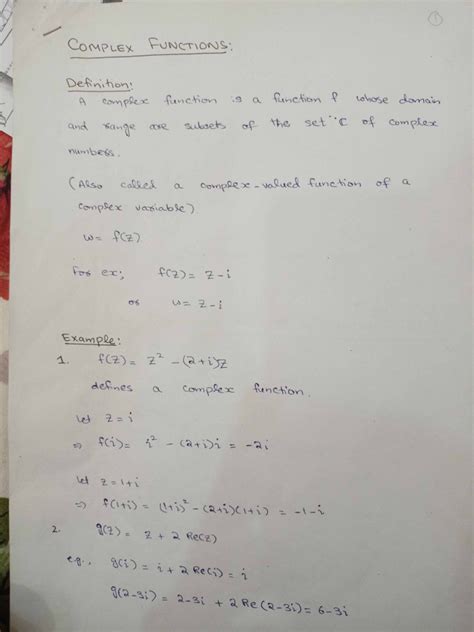 1
COMPLEX FUNCTIONS:
Definition:
A complex function is a function f whose domain
and range are subsets of the set C of complex
numbers.
(Also called a complex-valued function of a
complex variable)
w= f(z)
For ex; f(z) = z-i
or w= z-i
Example:
1. f(z) = z² - (2+i)z
defines a complex function.
let z=i
⇒ f(i) = i² - (2+i)i = -2i
let z=1+i
⇒ f(1+i) = (1+i)² - (2+i)(1+i) = -1-i
2. g(z) = z + 2 Re(z)
e.g., g(i) = i + 2 Re(i) = i
g(2-3i) = 2-3i + 2 Re(2-3i) = 6-3i